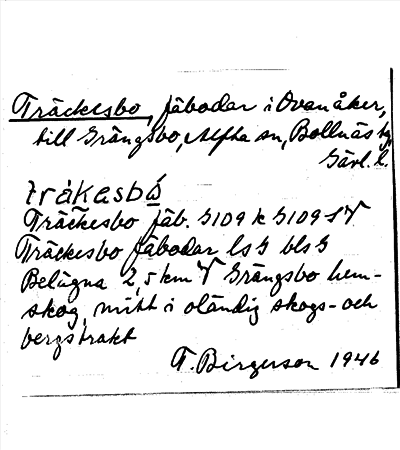 Träckesbo, fäbodar i Ovanåker,
till Grängsbo, Alfta sn, Bollnäs tg,
Gävl. l.
tràkasbó̲
Träckesbo fäb. G109 k G109 SV
Träckesbo fäbodar ls G bls G
Belägna 2,5 km V Grängsbo hem-
skog, mitt i oländig skogs- och
bergstrakt
T. Birgerson 1946